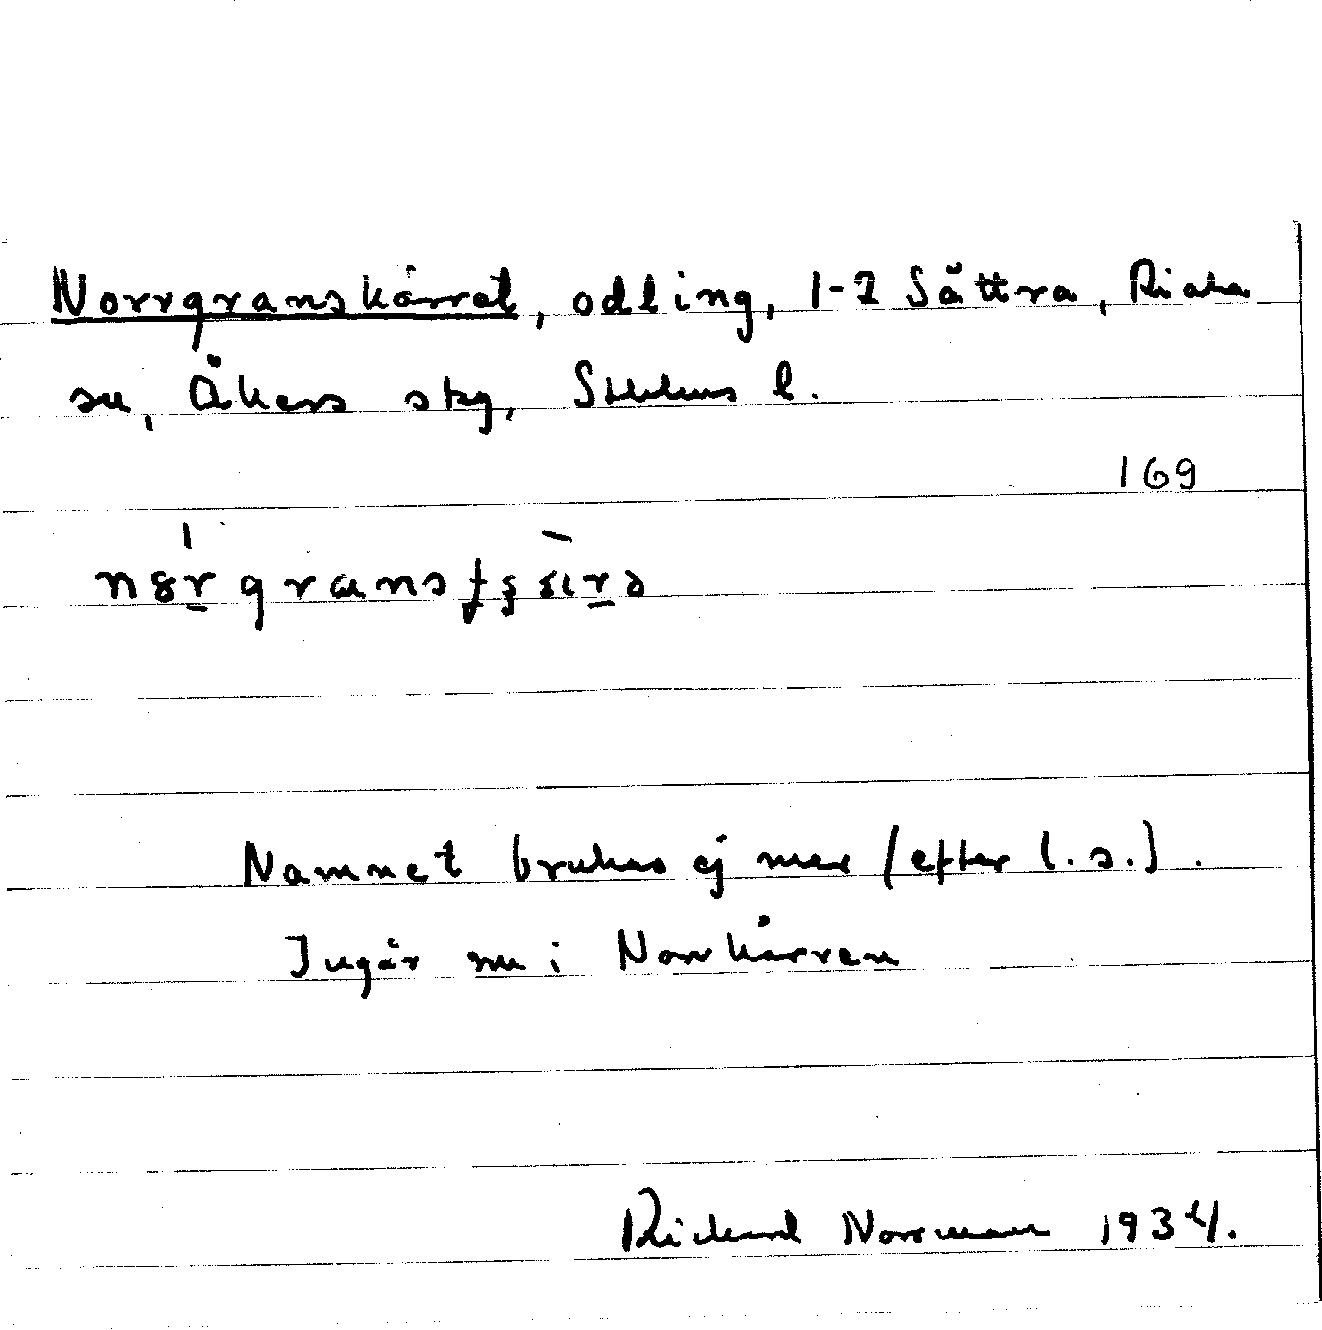 Norrgranskärret, odling, 1-2 Sättra, Riala
sn, Åkers skg, Sthlms l.
169
Namnet brukas ej mer (efter l. s.).
Ingår nu i Norrkärren
Rickard Norrman 1934.